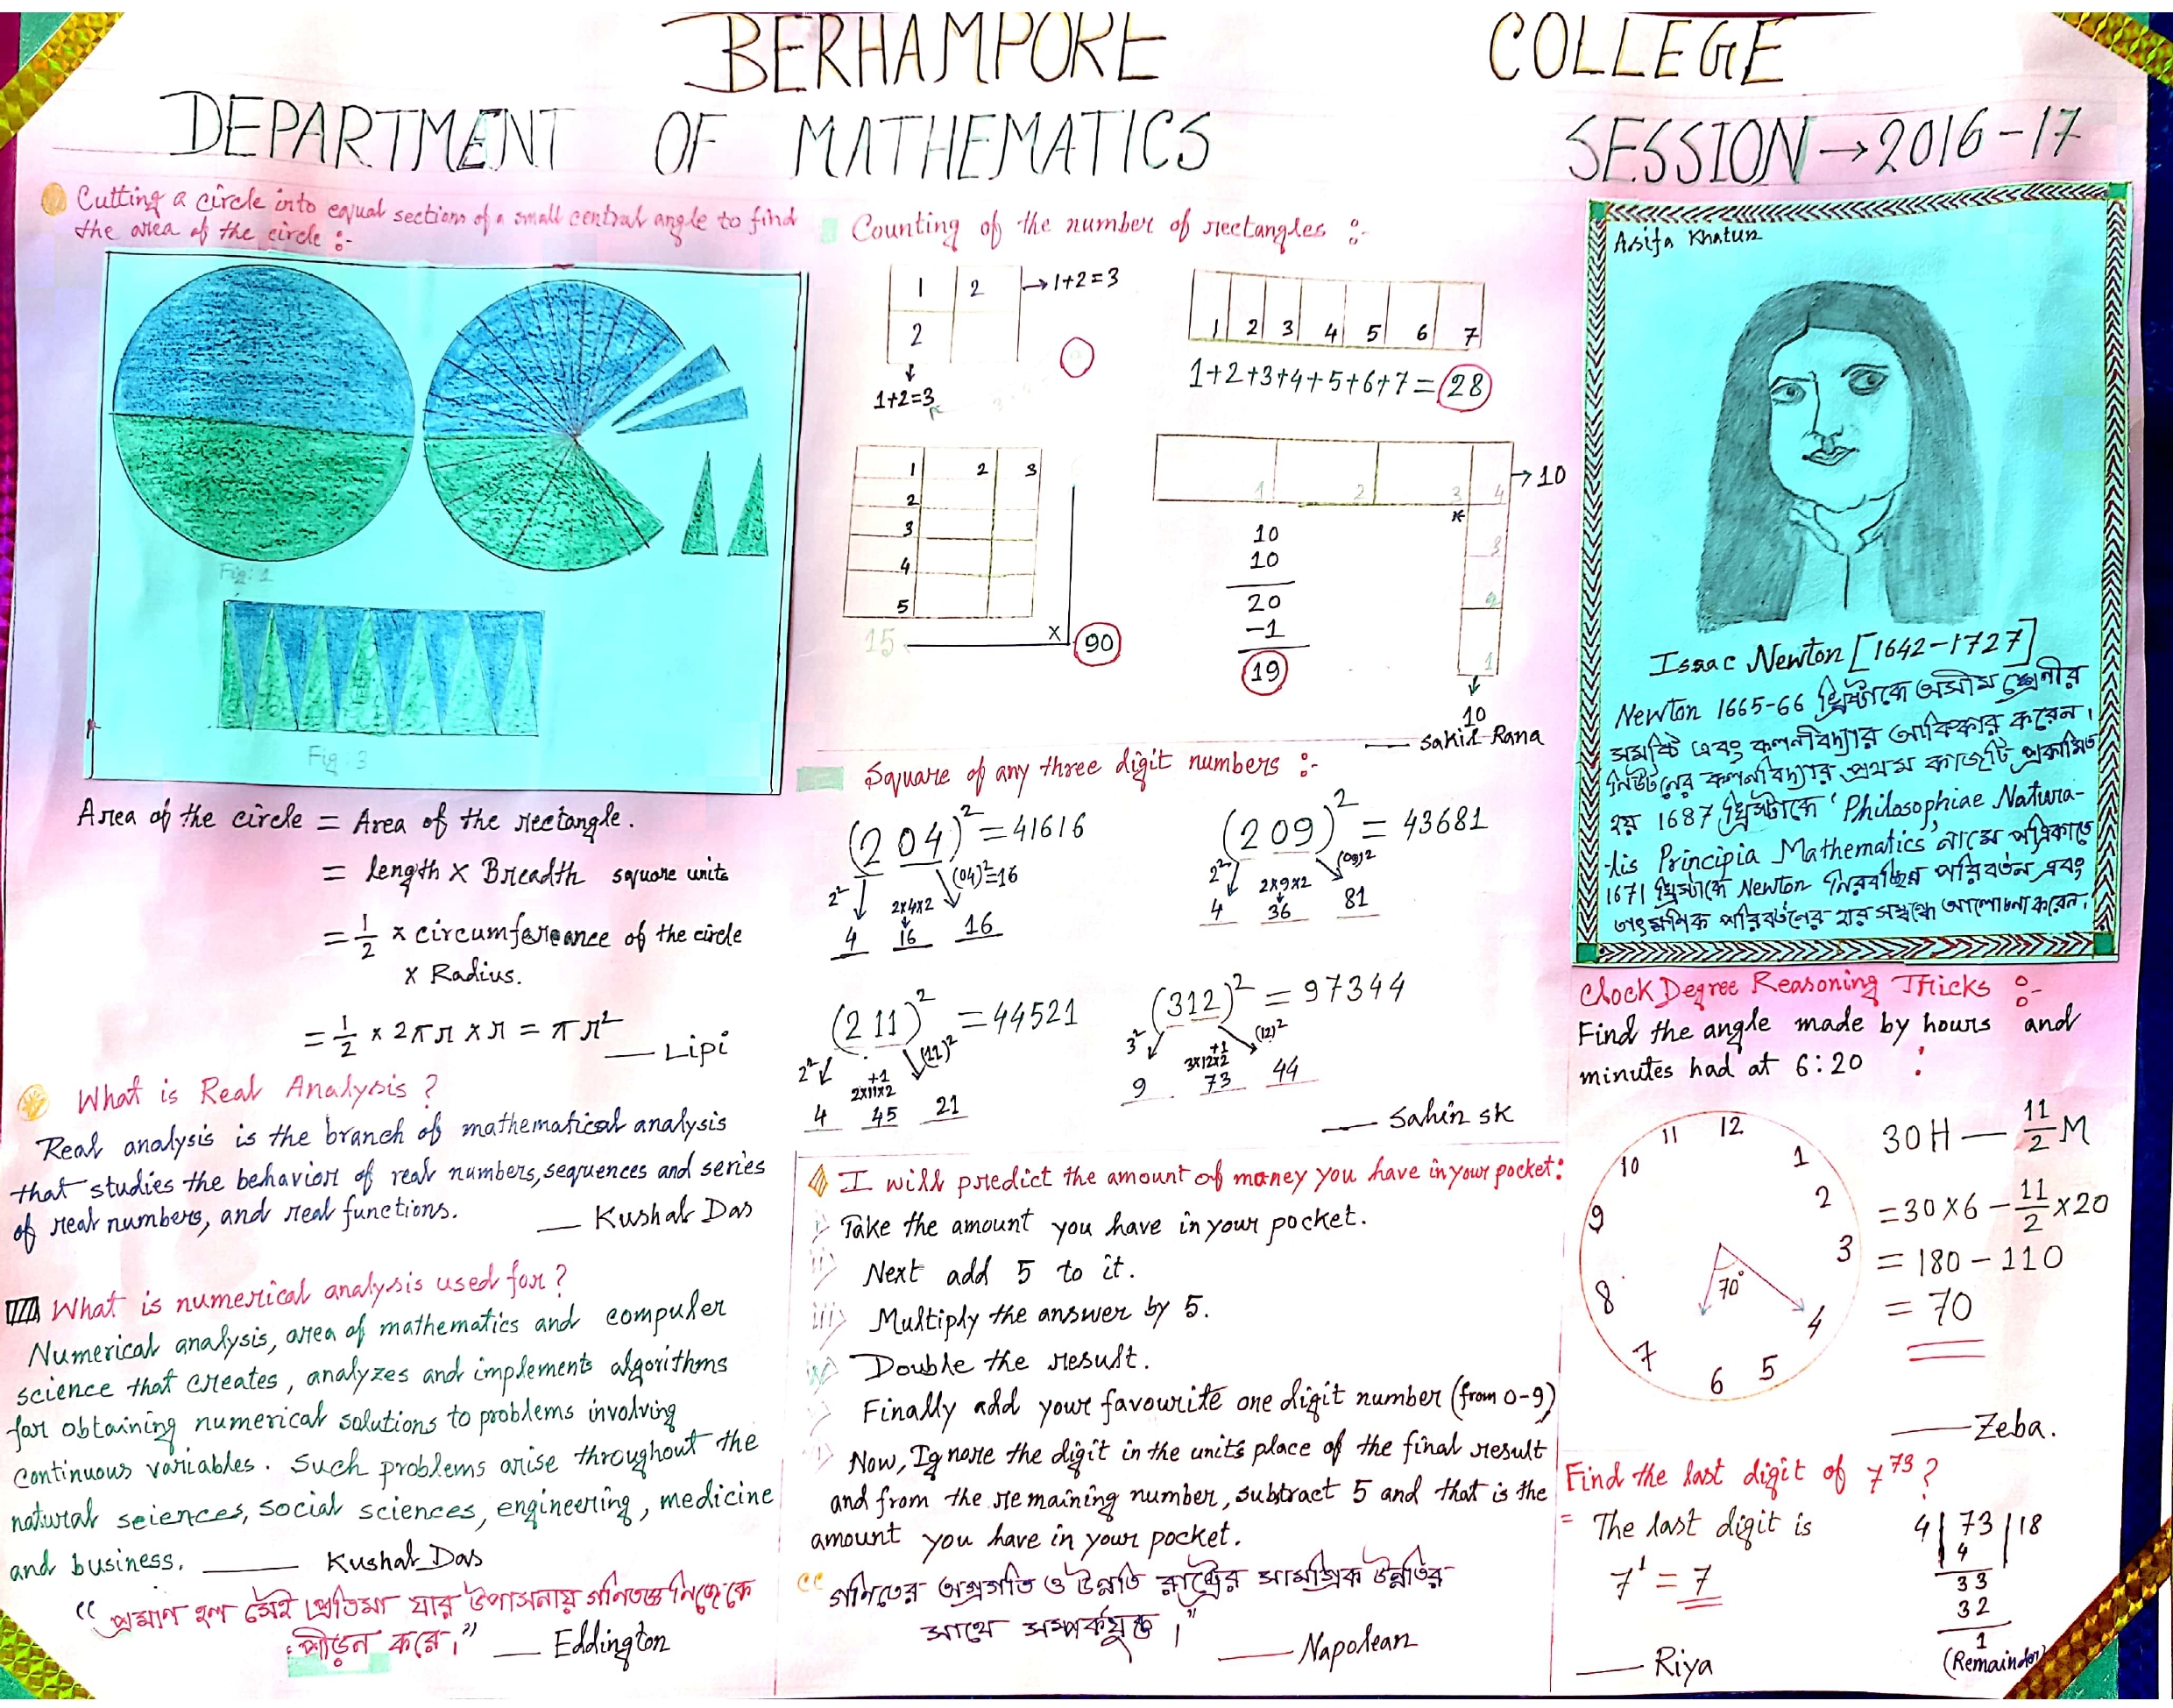 BERHAMPORE COLLEGE
DEPARTMENT OF MATHEMATICS SESSION → 2016-17
Cutting a circle into equal sections of a small central angle to find
the area of the circle :-
Fig: 1
Fig: 3
Area of the circle = Area of the rectangle.
= length × Breadth square units
= 1/2 × circumfareance of the circle
× Radius.
= 1/2 × 2πr × r = πr²
— Lipi
What is Real Analysis ?
Real analysis is the branch of mathematical analysis
that studies the behavior of real numbers, sequences and series
of real numbers, and real functions.
— Kushal Das
What is numerical analysis used for ?
Numerical analysis, area of mathematics and computer
science that creates, analyzes and implements algorithms
for obtaining numerical solutions to problems involving
continuous variables. Such problems arise throughout the
natural sciences, social sciences, engineering, medicine
and business. — Kushal Das
“প্রমাণ হল সেই প্রতিমা যার উপাসনায় গণিতজ্ঞ নিজেকে
পীড়ন করে।” — Eddington
Counting of the number of rectangles :-
1 2 → 1+2=3
2
1+2=3
1 2 3 4 5 6 7
1+2+3+4+5+6+7 = 28
1 2 3
2
3
4
5
15 × 90
1 2 3 4 → 10
3
2
1
10
10
10
20
-1
19
— Sakil Rana
Square of any three digit numbers :-
(204)² = 41616
2² 2×4×2 (04)²=16
4 16 16
(209)² = 43681
2² 2×9×2 (09)2
4 36 81
(211)² = 44521
2² +1 (11)²
2×11×2
4 45 21
(312)² = 97344
3² +1 (12)²
3×12×2
9 73 44
— Sahin sk
I will predict the amount of money you have in your pocket:
i) Take the amount you have in your pocket.
ii) Next add 5 to it.
iii) Multiply the answer by 5.
iv) Double the result.
Finally add your favourite one digit number (from 0-9)
Now, Ignore the digit in the units place of the final result
and from the remaining number, subtract 5 and that is the
amount you have in your pocket.
“গণিতের অগ্রগতি ও উন্নতি রাষ্ট্রের সামগ্রিক উন্নতির
সাথে সম্পর্কযুক্ত।”
— Napolean
Asifa Khatun
Issac Newton [1642-1727]
Newton 1665-66 খ্রিস্টাব্দে অসীম শ্রেণীর
সমষ্টি এবং কলনবিদ্যার আবিষ্কার করেন।
নিউটনের কলনবিদ্যার প্রথম কাজটি প্রকাশিত
হয় 1687 খ্রিস্টাব্দে ‘Philosophiae Natura-
-lis Principia Mathematics’ নামে পত্রিকাতে
1671 খ্রিস্টাব্দে Newton নিরবচ্ছিন্ন পরিবর্তন এবং
তাৎক্ষণিক পরিবর্তনের হার সম্বন্ধে আলোচনা করেন।
Clock Degree Reasoning Tricks :-
Find the angle made by hours and
minutes had at 6:20 :
12 1 2 3 4 5 6 7 8 9 10 11
70°
30H — 11/2 M
= 30×6 – 11/2 ×20
= 180 – 110
= 70
— Zeba.
Find the last digit of 7⁷³ ?
= The last digit is
7¹ = 7
4 | 73 | 18
4
33
32
1
(Remainder)
— Riya